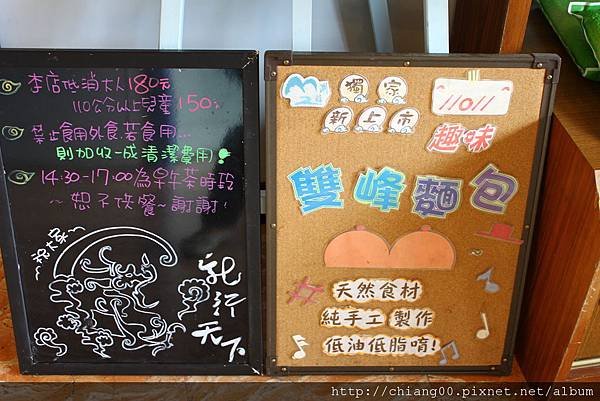 本店低消大人180元
110公分以上兒童150元
禁止食用外食.若食用...
則加收一成清潔費用!
14:30-17:00為早午茶時段
~恕不供餐~謝謝!
~祝大家~
龍行
天下
獨家
新上市
11011
趣味
雙峰麵包
天然食材
純手工製作
低油低脂唷!
http://chiang00.pixnet.net/album
album